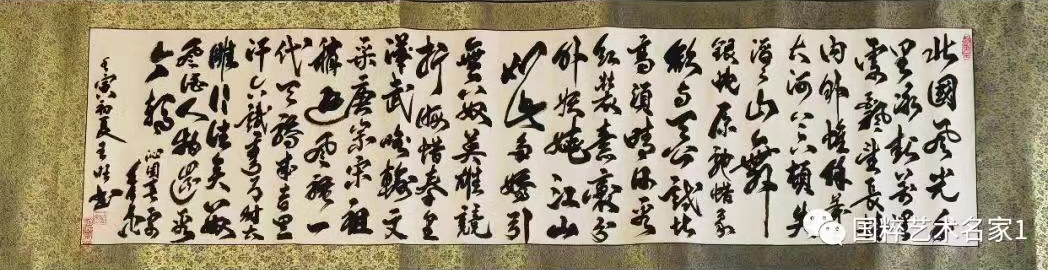 北國風光千
里冰封萬里
雪飄望長城
内外惟餘莽
大河上下頓失
滔滔山舞
銀蛇原馳蜡象
欲与天公試比
高須晴日看
紅裝素裹分
外妖嬈江山
如此多嬌引
無数英雄競
折腰惜秦皇
漢武略輸文
采唐宗宋祖
稍遜風騷一
代天驕成吉思
汗只識弯弓射大
雕俱往矣数
風流人物還看
今朝
沁園春雪
壬寅初夏王書
国粹艺术名家1